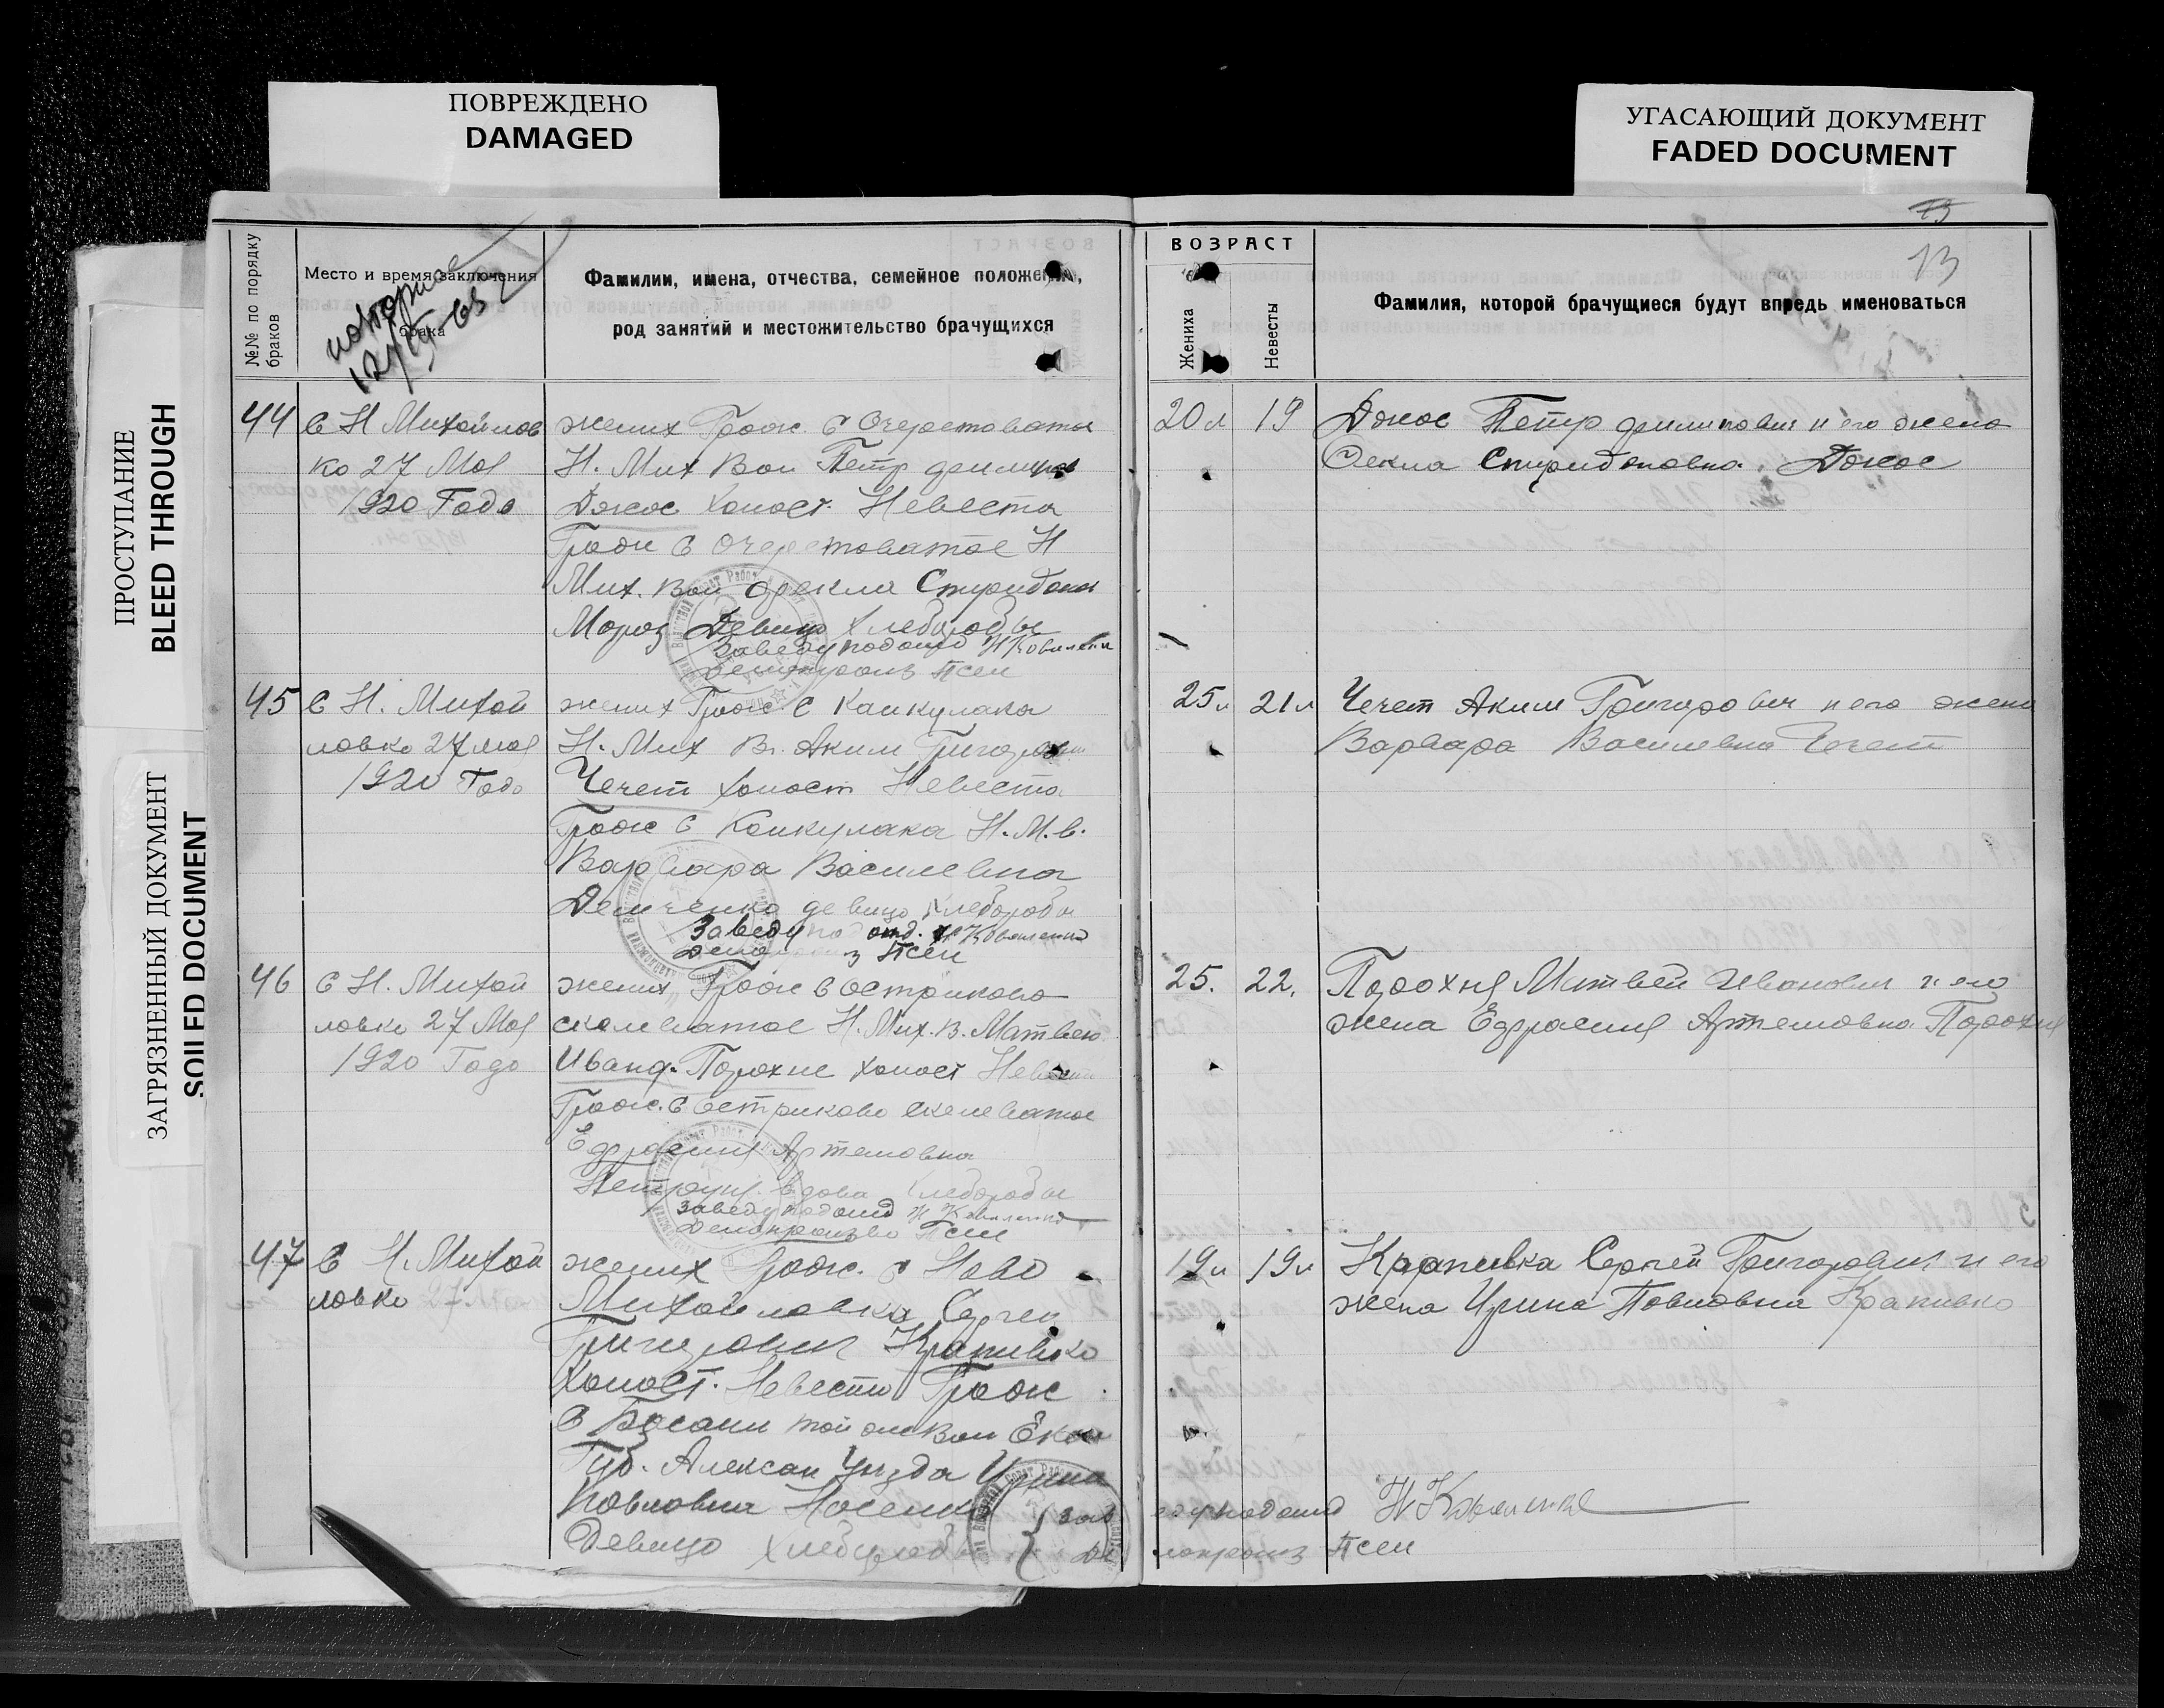 ПОВРЕЖДЕНО
DAMAGED
УГАСАЮЩИЙ ДОКУМЕНТ
FADED DOCUMENT
ПРОСТУПАНИЕ
BLEED THROUGH
ЗАГРЯЗНЕННЫЙ ДОКУМЕНТ
SOILED DOCUMENT
13
№№ по порядку браков
Место и время заключения брака
Фамилии, имена, отчества, семейное положение,
род занятий и местожительство брачущихся
ВОЗРАСТ
Жениха
Невесты
Фамилия, которой брачущиеся будут впредь именоваться
повторное
44
С Н Михайлов
ка 27 Мая
1920 Года
жених Граж. С Очеретоватое
Н. Мих Вол Петр Филипов
Джос холост. Невеста
Граж С Очеретоватое Н
Мих. Вол Фекла Спиридон
Мороз Девица Хлеборобы
Заведу подотд Н Коваленко
Делопроизв Псел
20 л
19
Джос Петр Филипович и его жена
Фекла Спиридоновна Джос
45
С Н. Михай
ловка 27 мая
1920 Года
жених Граж. С Каикулака
Н. Мих В. Аким Григоров
Чечет холост Невеста
Граж С Каикулака Н. М. в.
Варвара Василевна
Демченко девица Хлеборобы
Заведу под отд. Н Коваленко
Псел
25 л
21 л
Чечет Аким Григорович и его жена
Варвара Василевна Чечет
46
С Н. Михай
ловка 27 Мая
1920 Года
жених Граж С Остриково
скелеватое Н. Мих. В. Матвей
Иванф. Порохня холост Невеста
Граж. С Остриково скелеватое
Ефросиния Артемовна
вдова Хлеборобы
Заведу подотд Н Коваленко
Делопроизво Псел
25.
22.
Порохня Митвей Иванович и его
жена Ефросиния Артемовна Порохня
47
С Н. Михай
ловка 27
жених Граж. С Ново
Михайловка Сергей
Григорович Крапивка
Холост. Невеста Граж
С Басани той же Вол Екат
Губ. Алексан Уезда Ирина
Павловна Носенко
Девица Хлебороб
19 л
19 л
Крапивка Сергей Григорович и его
жена Ирина Павловна Крапивко
Заведу подотд Н Коваленко
Делопроизв Псел